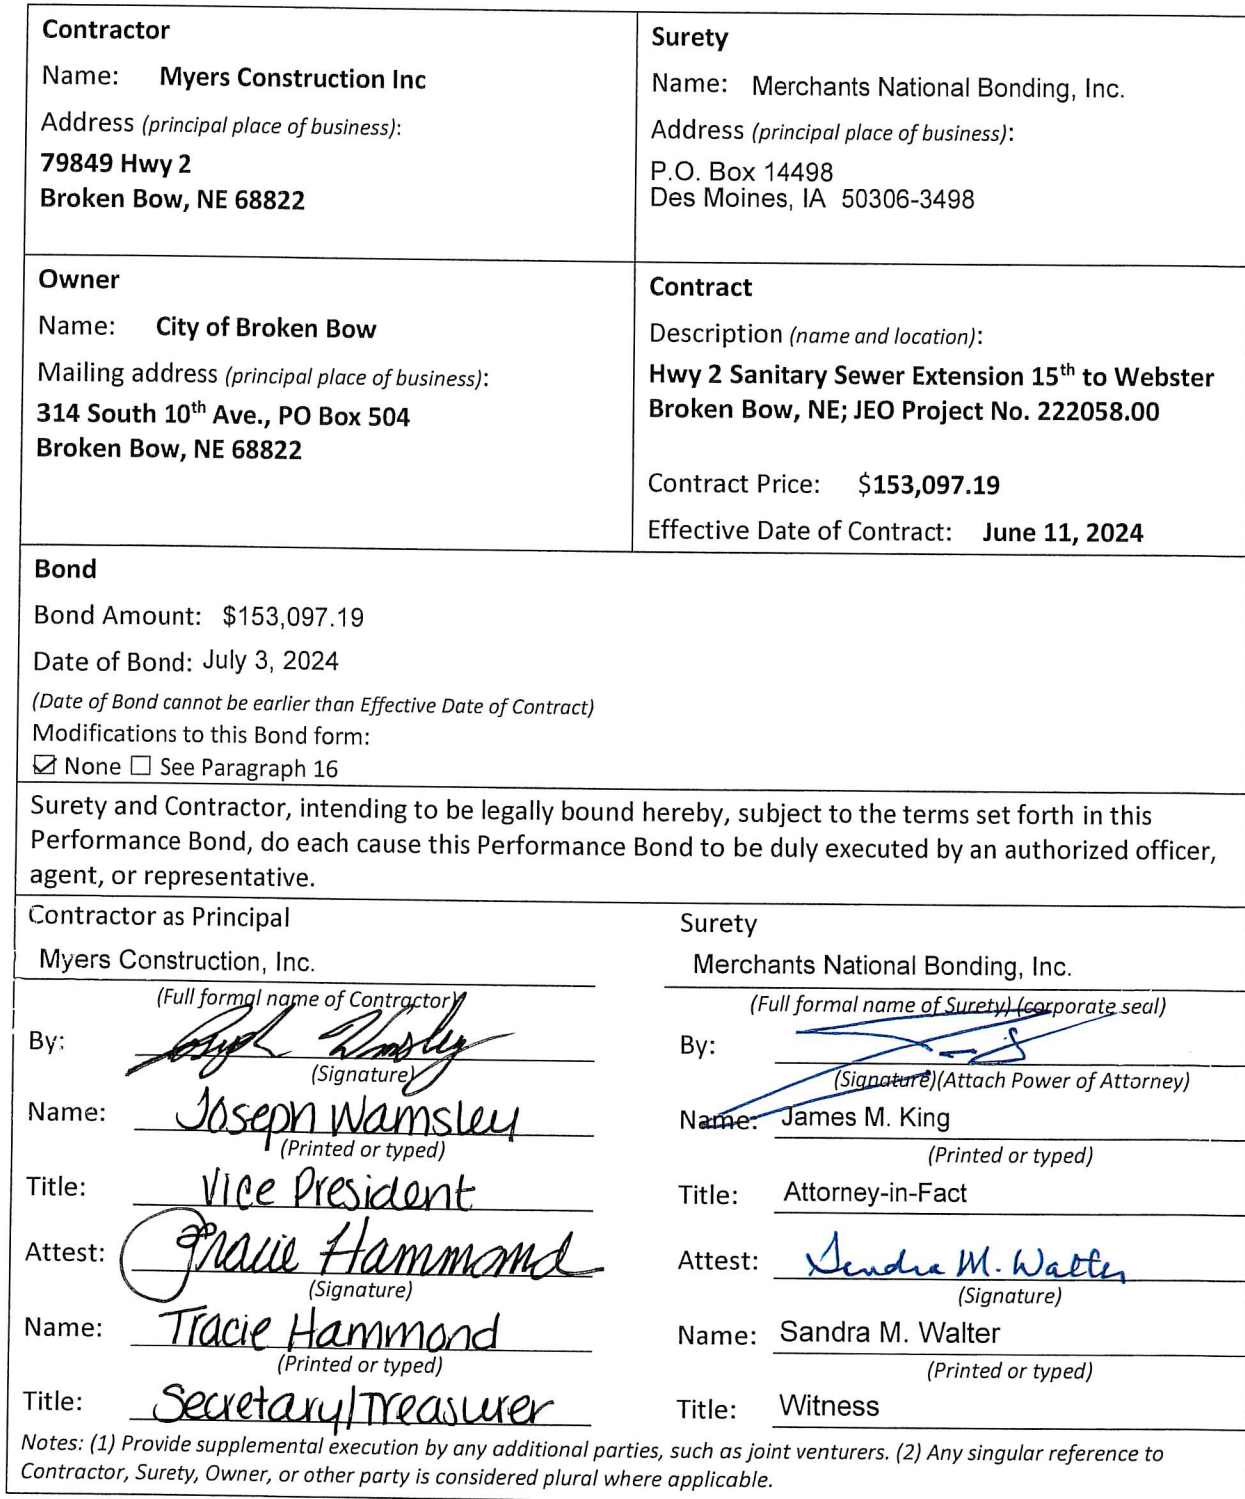 Contractor
Name: Myers Construction Inc
Address (principal place of business):
79849 Hwy 2
Broken Bow, NE 68822
Surety
Name: Merchants National Bonding, Inc.
Address (principal place of business):
P.O. Box 14498
Des Moines, IA 50306-3498
Owner
Name: City of Broken Bow
Mailing address (principal place of business):
314 South 10th Ave., PO Box 504
Broken Bow, NE 68822
Contract
Description (name and location):
Hwy 2 Sanitary Sewer Extension 15th to Webster
Broken Bow, NE; JEO Project No. 222058.00
Contract Price: $153,097.19
Effective Date of Contract: June 11, 2024
Bond
Bond Amount: $153,097.19
Date of Bond: July 3, 2024
(Date of Bond cannot be earlier than Effective Date of Contract)
Modifications to this Bond form:
☑ None ☐ See Paragraph 16
Surety and Contractor, intending to be legally bound hereby, subject to the terms set forth in this
Performance Bond, do each cause this Performance Bond to be duly executed by an authorized officer,
agent, or representative.
Contractor as Principal
Myers Construction, Inc.
(Full formal name of Contractor)
By: Joseph Wamsley
(Signature)
Name: Joseph Wamsley
(Printed or typed)
Title: Vice President
Attest: Tracie Hammond
(Signature)
Name: Tracie Hammond
(Printed or typed)
Title: Secretary/Treasurer
Surety
Merchants National Bonding, Inc.
(Full formal name of Surety) (corporate seal)
By:
(Signature)(Attach Power of Attorney)
Name: James M. King
(Printed or typed)
Title: Attorney-in-Fact
Attest: Sandra M. Walter
(Signature)
Name: Sandra M. Walter
(Printed or typed)
Title: Witness
Notes: (1) Provide supplemental execution by any additional parties, such as joint venturers. (2) Any singular reference to
Contractor, Surety, Owner, or other party is considered plural where applicable.